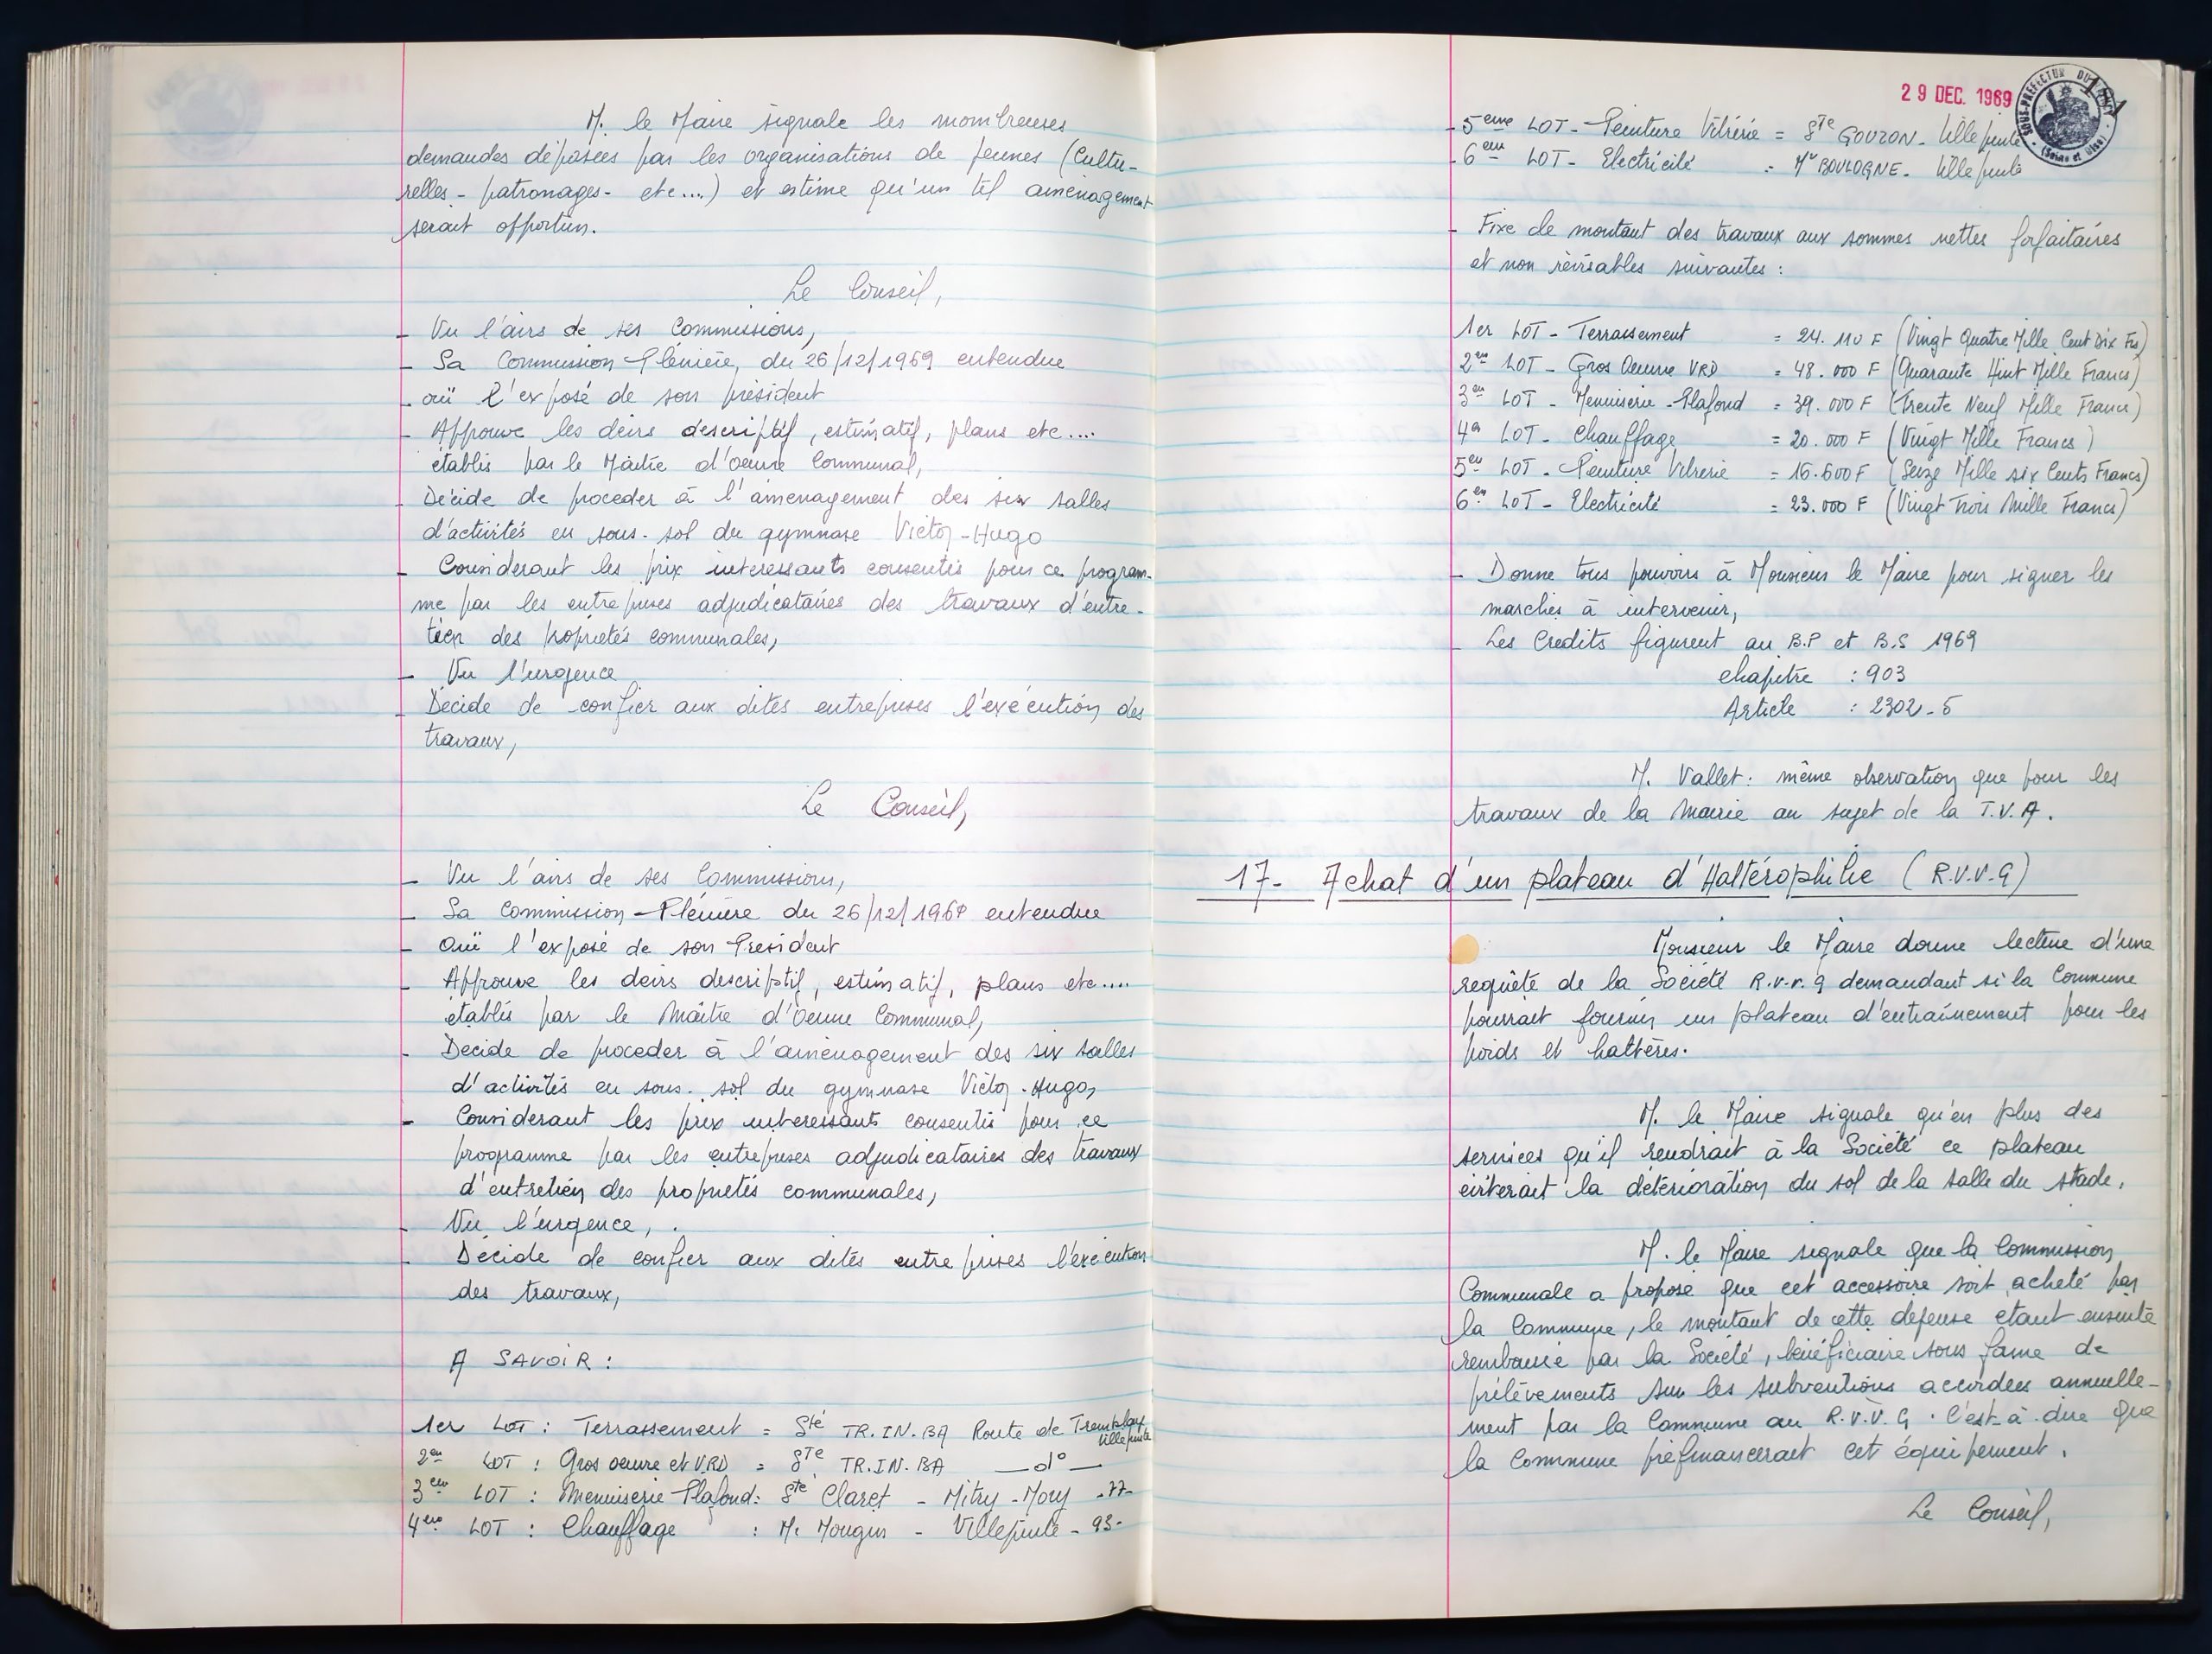 M. le Maire signale les nombreuses
demandes déposées par les organisations de jeunes (Cultu-
relles - patronages - etc...) et estime qu'un tel aménagement
serait opportun.
Le Conseil,
- Vu l'avis de ses Commissions,
- Sa Commission Plénière, du 26/12/1969 entendue
- ouï l'exposé de son président
- Approuve les devis descriptif, estimatif, plans etc....
établis par le Maître d'Oeuvre Communal,
- Décide de proceder à l'aménagement des six salles
d'activités en sous-sol du gymnase Victor-Hugo
- Considerant les prix interessants consentis pour ce program-
me par les entreprises adjudicataires des travaux d'entre-
tien des propriétés communales,
- Vu l'urgence
- Décide de confier aux dites entreprises l'exécution des
travaux,
Le Conseil,
- Vu l'avis de ses Commissions,
- Sa Commission-Plénière du 26/12/1969 entendue
- Ouï l'exposé de son President
- Approuve les devis descriptif, estimatif, plans etc....
établis par le Maître d'Oeuvre Communal,
- Decide de proceder à l'aménagement des six salles
d'activités en sous-sol du gymnase Victor-Hugo,
- Considerant les prix interessants consentis pour ce
programme par les entreprises adjudicataires des travaux
d'entretien des propriétés communales,
- Vu l'urgence,.
- Décide de confier aux dites entreprises l'exécution
des travaux,
A SAVOIR :
1er LOT : Terrassement = Sté TR.IN.BA Route de Tremblay
Villepinte
2em LOT : Gros oeuvre et VRD = STE TR.IN.BA — d° —
3em LOT : Menuiserie Plafond : Ste Claret - Mitry-Mory -77-
4eme LOT : Chauffage : M. Mougin - Villepinte - 93-
29 DEC. 1969
SOUS-PREFECTURE DU
(Seine et Oise)
- 5eme LOT - Peinture Vitrerie = STe GOUZON - Villepinte
- 6eme LOT - Electricité = Mr BOULOGNE - Villepinte
- Fixe le montant des travaux aux sommes nettes forfaitaires
et non révisables suivantes :
1er LOT - Terrassement = 24.110 F (Vingt Quatre Mille Cent Dix Frs)
2em LOT - Gros Oeuvre VRD = 48.000 F (Quarante Huit Mille Francs)
3em LOT - Menuiserie-Plafond = 39.000 F (Trente Neuf Mille Francs)
4em LOT - Chauffage = 20.000 F (Vingt Mille Francs)
5em LOT - Peinture Vitrerie = 16.600 F (Seize Mille six Cents Francs)
6em LOT - Electricité = 23.000 F (Vingt Trois Mille Francs)
- Donne tous pouvoirs à Monsieur le Maire pour signer les
marchés à intervenir,
- Les Credits figurent au B.P et B.S 1969
chapitre : 903
Article : 2302-5
M. Vallet : même observation que pour les
travaux de la Mairie au sujet de la T.V.A.
17- Achat d'un plateau d'Haltérophilie (R.V.V.G)
Monsieur le Maire donne lecture d'une
requête de la Société R.v.v.g demandant si la Commune
pourrait fournir un plateau d'entrainement pour les
poids et haltères.
M. le Maire signale qu'en plus des
services qu'il rendrait à la Société ce plateau
éviterait la détérioration du sol de la salle du stade.
M. le Maire signale que la Commission
Communale a proposé que cet accessoire soit acheté par
la Commune, le montant de cette dépense étant ensuite
remboursé par la Société, bénéficiaire sous forme de
prélèvements sur les subventions accordées annuelle-
ment par la Commune au R.V.V.G. c'est-à-dire que
la Commune préfinancerait cet équipement.
Le Conseil,